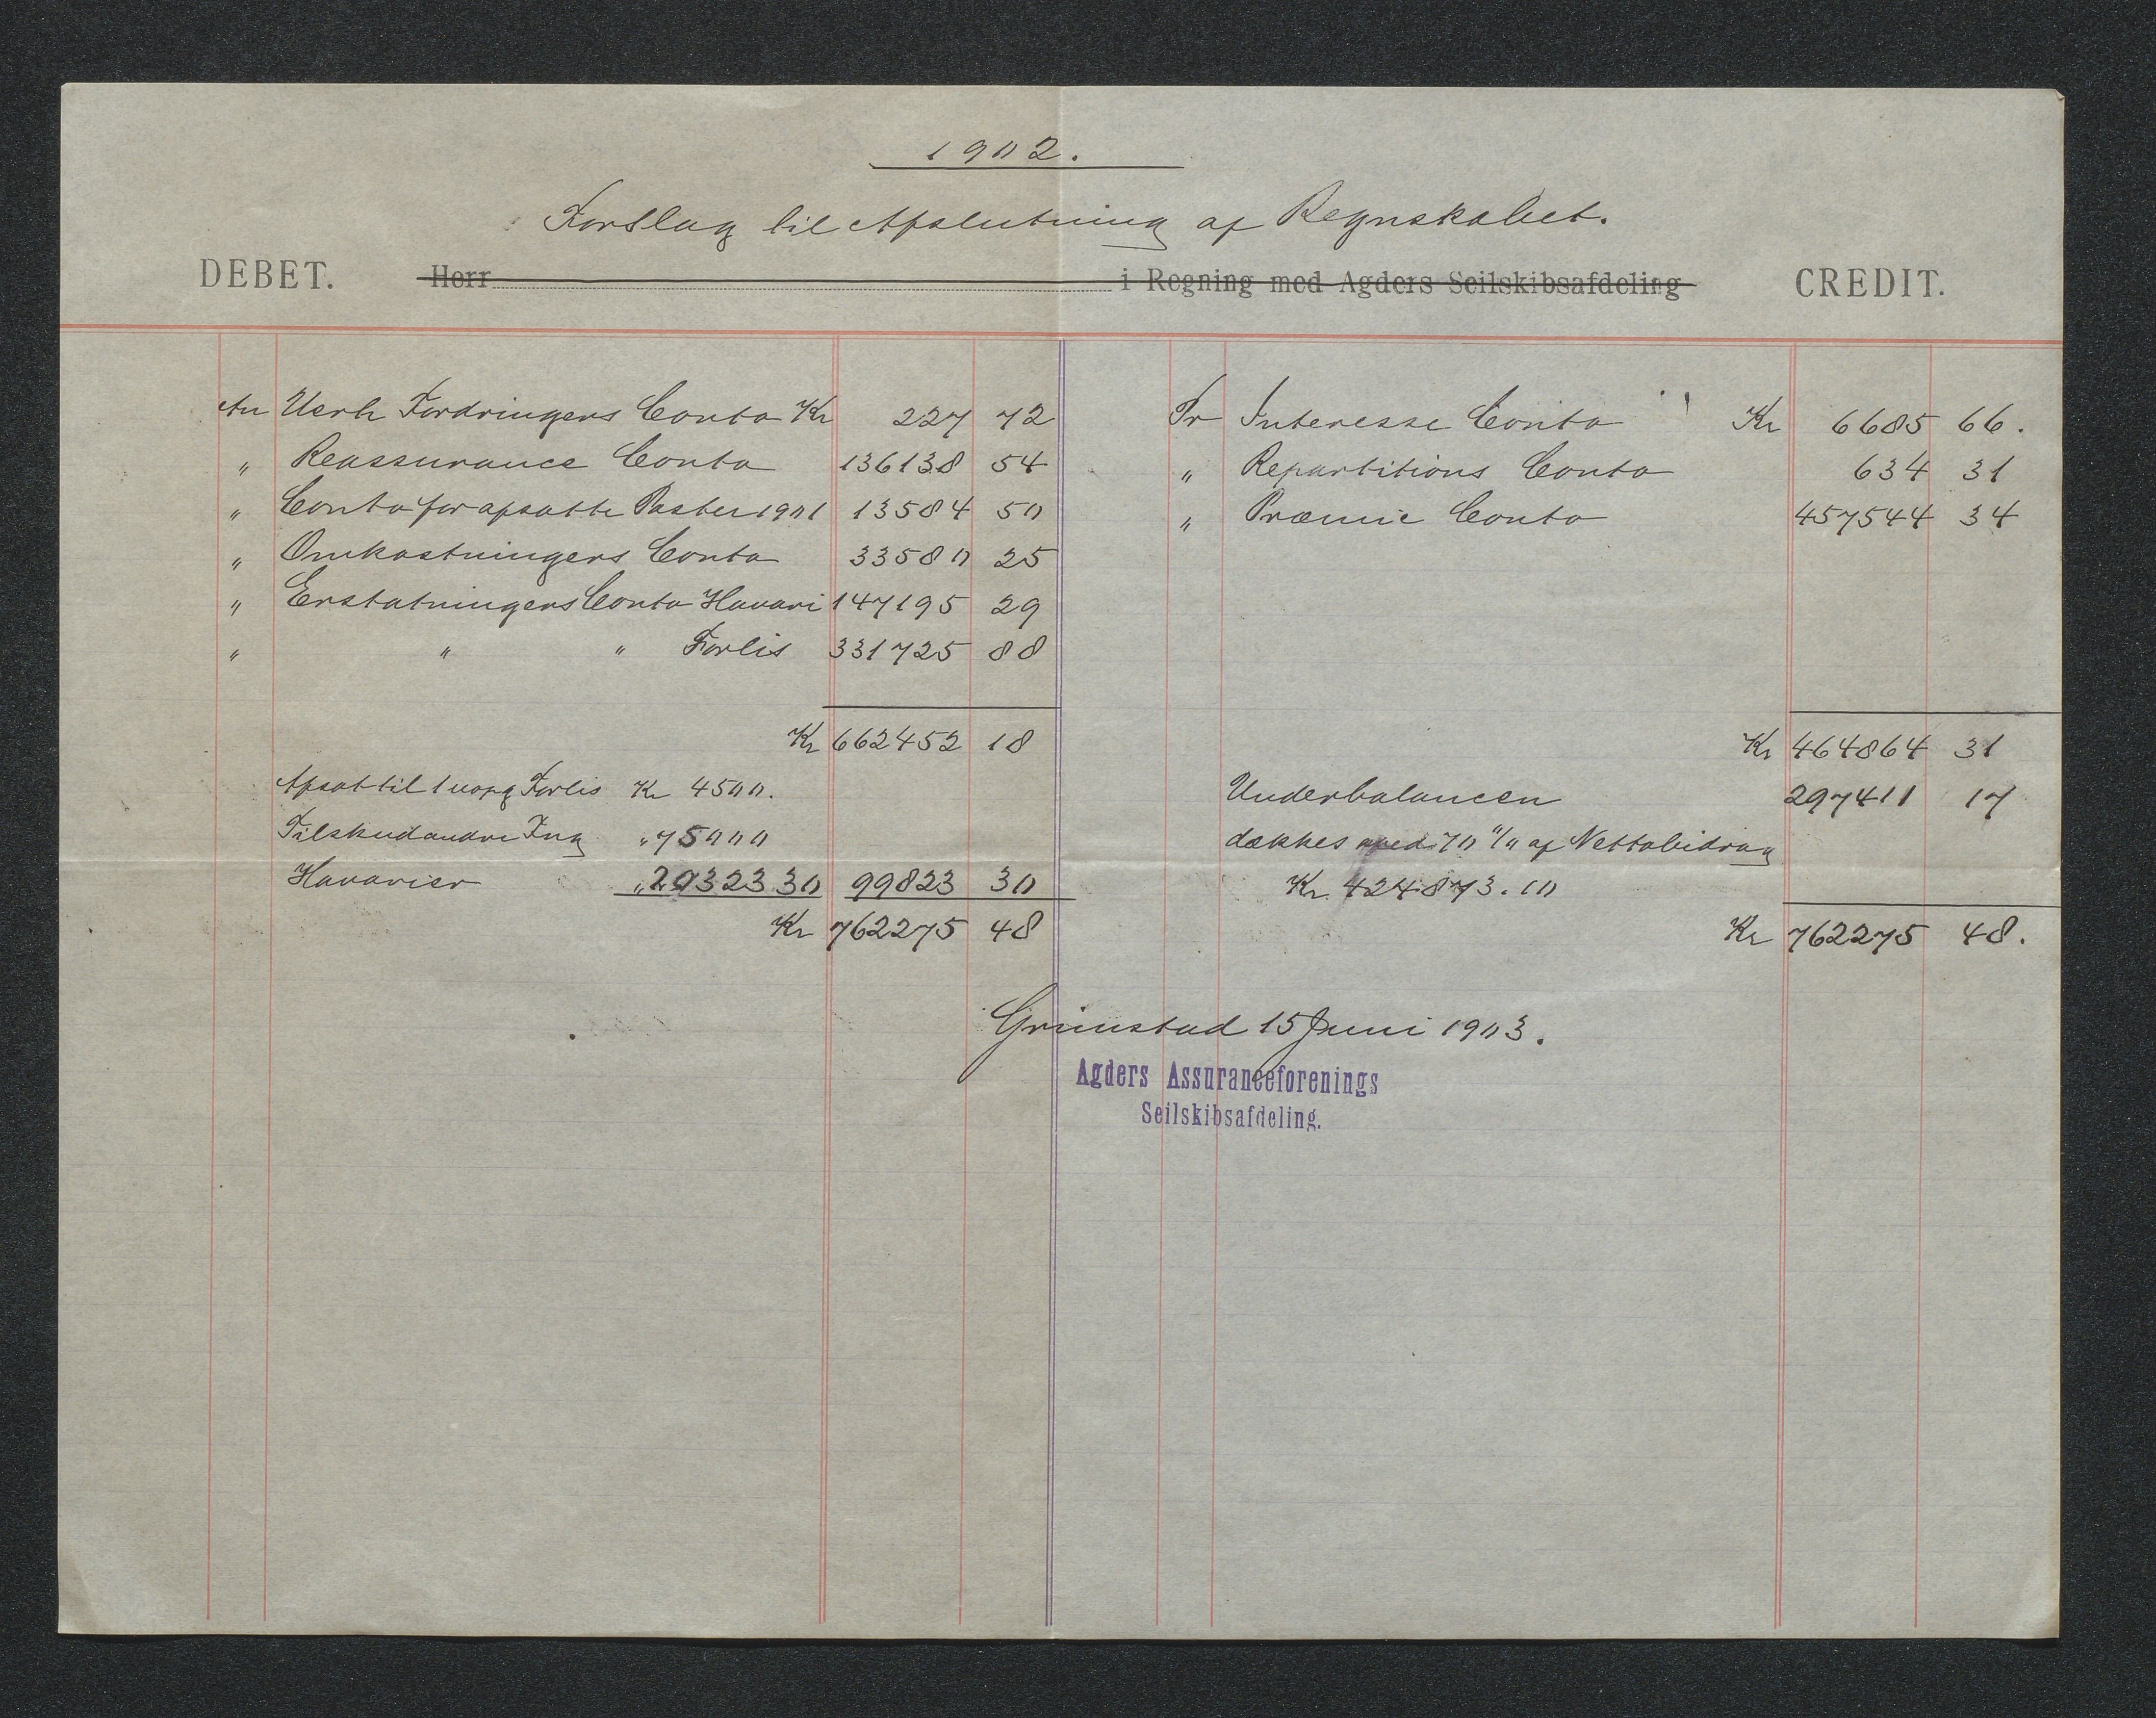 1902.
Forslag til Afslutning af Regnskabet.
DEBET. Herr i Regning med Agders Seilskibsafdeling CREDIT.
An Uerh Fordringers Conto Kr 227 72
" Reassurance Conto 136138 54
" Conto for afsatte Poster 1901 13584 50
" Omkostningers Conto 33580 25
" Erstatningers Conto Havari 147195 29
" " " Forlis 331725 88
Kr 662452 18
Afsat til 1 uopg Forlis Kr 4500.
Tilskud andre Ing " 75000
Havarier " 20323 30 99823 30
Kr 762275 48
Pr Interesse Conto Kr 6685 66.
" Repartitions Conto 634 31
" Præmie Conto 457544 34
Kr 464864 31
Underbalancen 297411 17
dækkes med 70 % af Nettobidrag
Kr. 424873.00
Kr 762275 48.
Grimstad 15 Juni 1903.
Agders Assuranceforenings
Seilskibsafdeling.